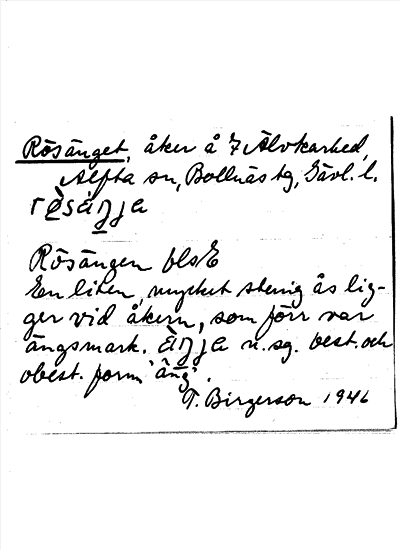 Rösänget, åker å 7 Älvkarhed,
Alfta sn, Bollnäs tg, Gävl. l.
Rösängen blsE
En liten, mycket stenig ås lig-
ger vid åkern, som förr var
ängsmark. n. sg. best. och
obest. form 'äng'.
T. Birgerson 1946